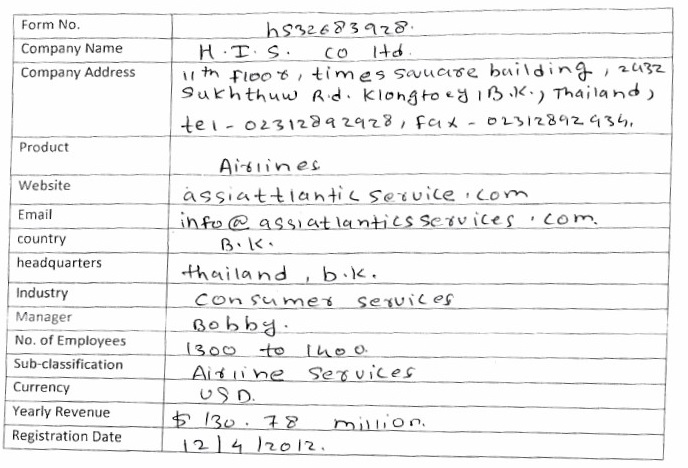 Form No. hs32683928.
Company Name H.I.S. co ltd.
Company Address 11th floor, times sauare building, 2432
Sukhthuw R.d. Klongtoey, B.K., Thailand,
tel - 02312892928, fax - 02312892934.
Product Airlines
Website assiattlantic service.com
Email info@assiatlanticsservices.com.
country B.K.
headquarters thailand, b.k.
Industry consumer services
Manager Bobby.
No. of Employees 1300 to 1400.
Sub-classification Airline services
Currency USD.
Yearly Revenue $ 130.78 million.
Registration Date 12/4/2012.